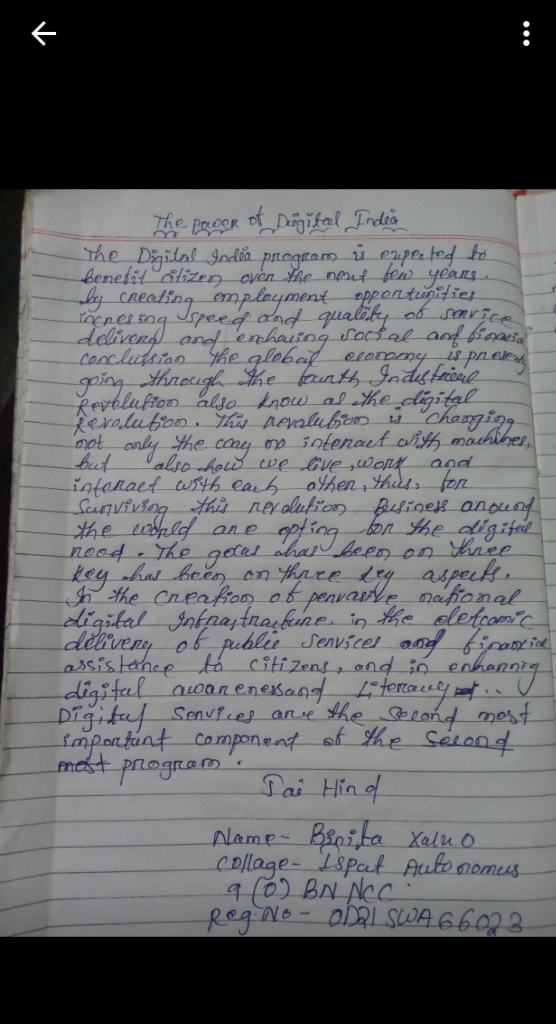 The pawer of Digital India
The Digital India program is expected to
benefit citizen over the next few years.
by creating employment opportunities
incresing speed and quality of service
delivery and enhacing social and financial
conclussion the global economy is presently
going through the fourth Industrial
Revolution also know as the digital
Revolution. This revolution is changing
not only the way interact with machines,
but also how we live, work and
interact with each other, thus, for
Surviving this revolution Business around
the world are opting for the digital
road. The has been on three
key has been on three key aspects.
In the creation of pervasive national
digital Infrastracture, in the
delivery of public services and financial
assistance to citizens, and in enhannig
digital awarenessand Literacy ..
Digital Services are the second most
important component of the second
most program.
Jai Hind
Name- Binita Xalxo
Collage- Ispat Autonomus
9 (O) BN NCC
Reg.No - OD21SWA66023